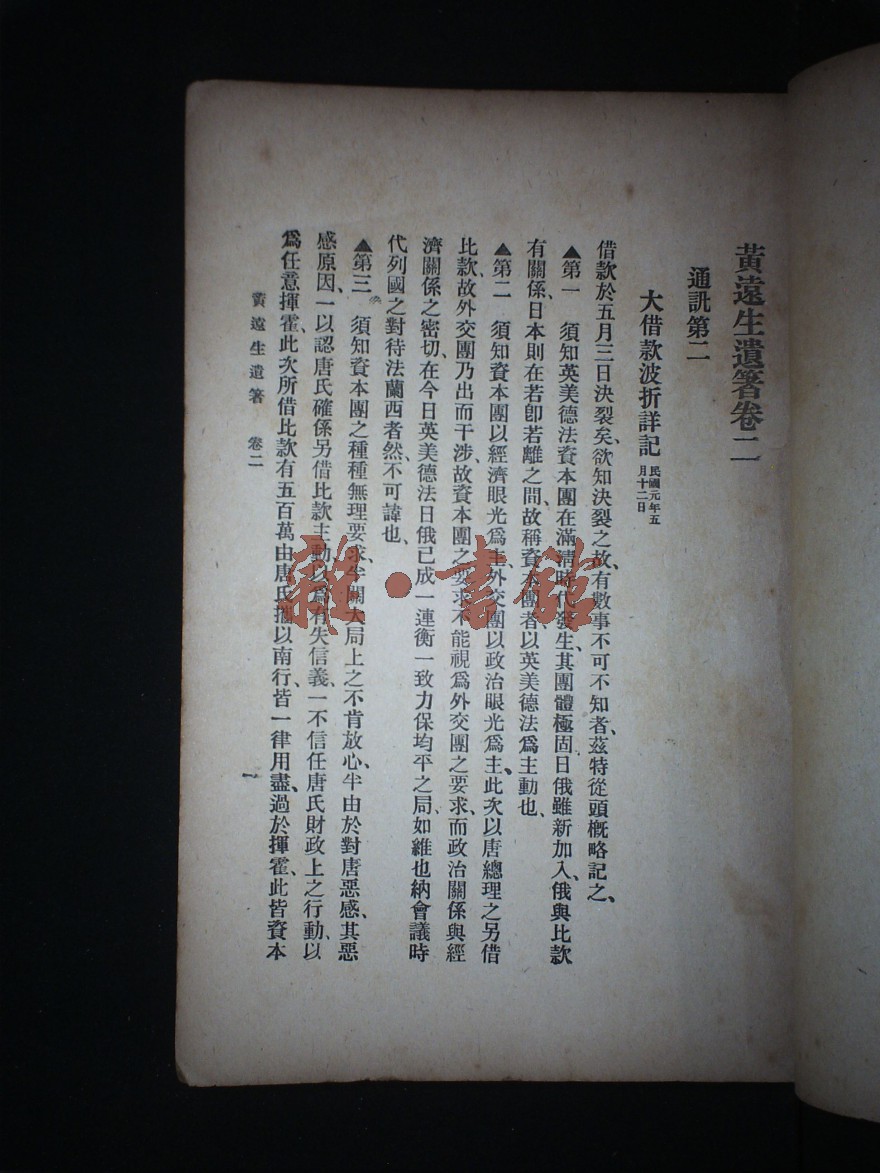 黃遠生遺箸卷二
通訊第二
大借款波折詳記 民國元年五月十二日
借款於五月三日決裂矣、欲知決裂之故、有數事不可不知者、茲特從頭概略記之、
▲第一　須知英美德法資本團在滿清時代發生、其團體極固日俄雖新加入、俄與比款
有關係日本則在若卽若離之間、故稱資本團者、以英美德法爲主動也、
▲第二　須知資本團以經濟眼光爲主、外交團以政治眼光爲主、此次以唐總理之另借
比款、故外交團乃出而干涉、故資本團之要求不能視爲外交團之要求、而政治關係與經
濟關係之密切、在今日英美德法日俄已成一連衡一致力保均平之局、如維也納會議時
代列國之對待法蘭西者然不可諱也、
▲第三　須知資本團之種種無理要求、半關大局上之不肯放心、半由於對唐惡感、其惡
感原因、一以認唐氏確係另借比款主動、以爲有失信義、一不信任唐氏財政上之行動、以
爲任意揮霍、此次所借比款有五百萬由唐氏攜以南行、皆一律用盡、過於揮霍、此皆資本
黃遠生遺箸　卷二
一
雜·書館